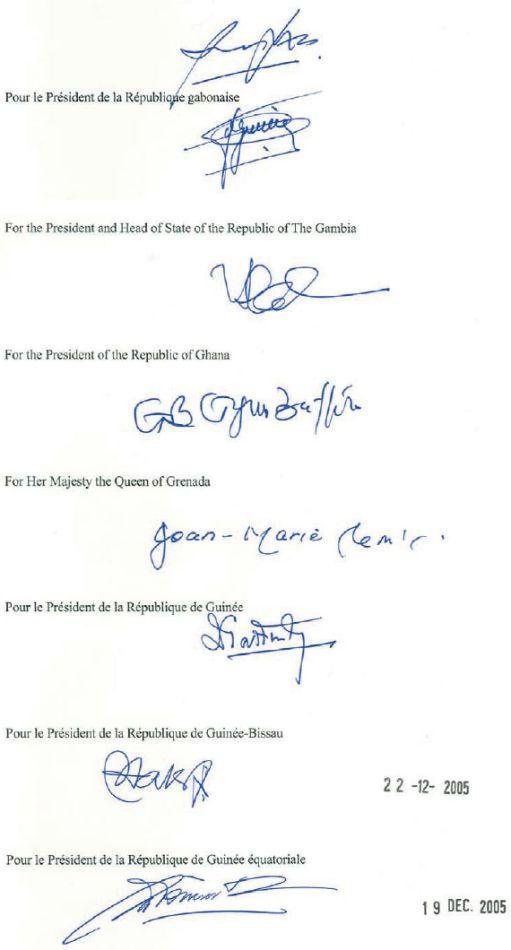 Pour le Président de la République gabonaise
For the President and Head of State of the Republic of The Gambia
For the President of the Republic of Ghana
For Her Majesty the Queen of Grenada
Joan-Marie
Pour le Président de la République de Guinée
Pour le Président de la République de Guinée-Bissau
22 -12- 2005
Pour le Président de la République de Guinée équatoriale
19 DEC. 2005